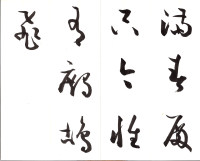 滿春殿
只今惟
有鷓鴣
飛